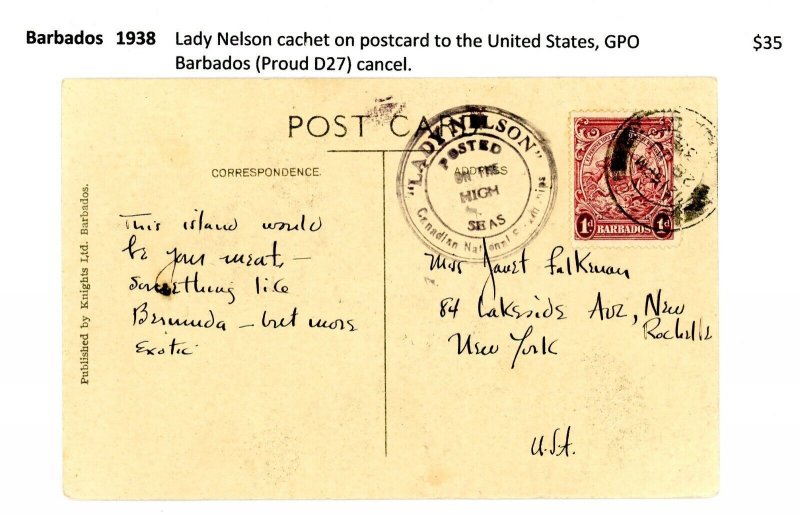 Barbados 1938 Lady Nelson cachet on postcard to the United States, GPO $35
Barbados (Proud D27) cancel.
POST CARD
CORRESPONDENCE.
ADDRESS
"LADY NELSON"
POSTED
ON THE
HIGH
SEAS
Canadian National Steamships
1d BARBADOS 1d
This island would
be your meat –
something like
Bermuda – but more
exotic
Miss Janet Falkenan
84 Lakeside Ave, New
Rochelle
New York
U.S.A.
Published by Knights Ltd. Barbados.